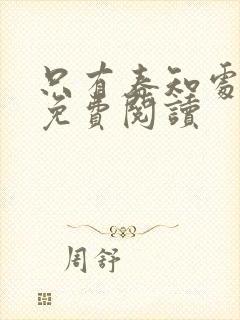 只有春知處
免費閱讀
周舒